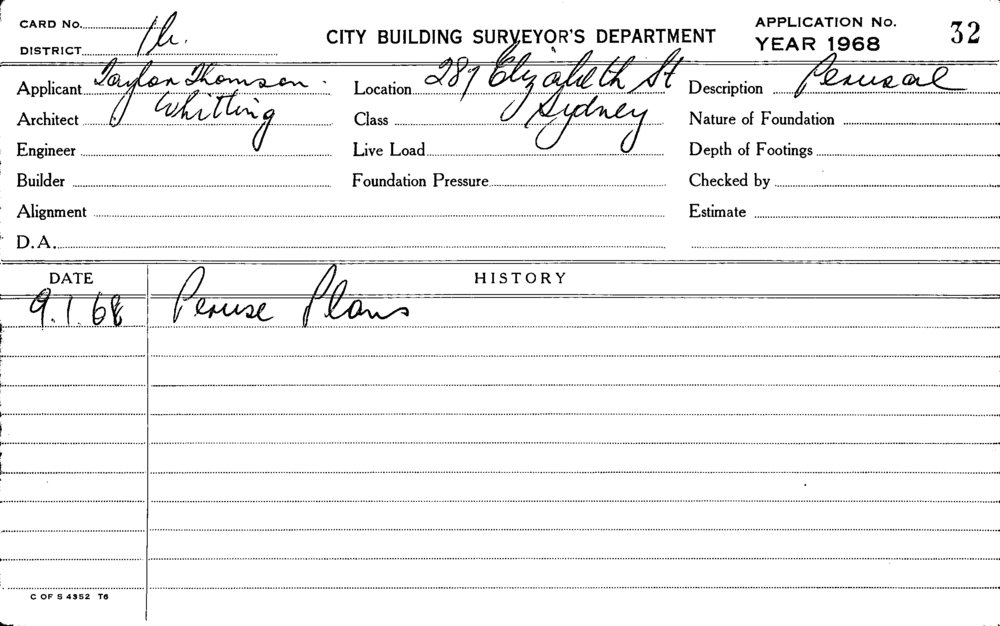 CARD No.
DISTRICT
CITY BUILDING SURVEYOR'S DEPARTMENT
APPLICATION No. 32
YEAR 1968
Applicant Taylor Thomson Whitting
Location 287 Elizabeth St Sydney
Description Perusal
Architect
Class
Nature of Foundation
Engineer
Live Load
Depth of Footings
Builder
Foundation Pressure
Checked by
Alignment
Estimate
D.A.
DATE HISTORY
9.1.68 Peruse Plans
C OF S 4352 T6